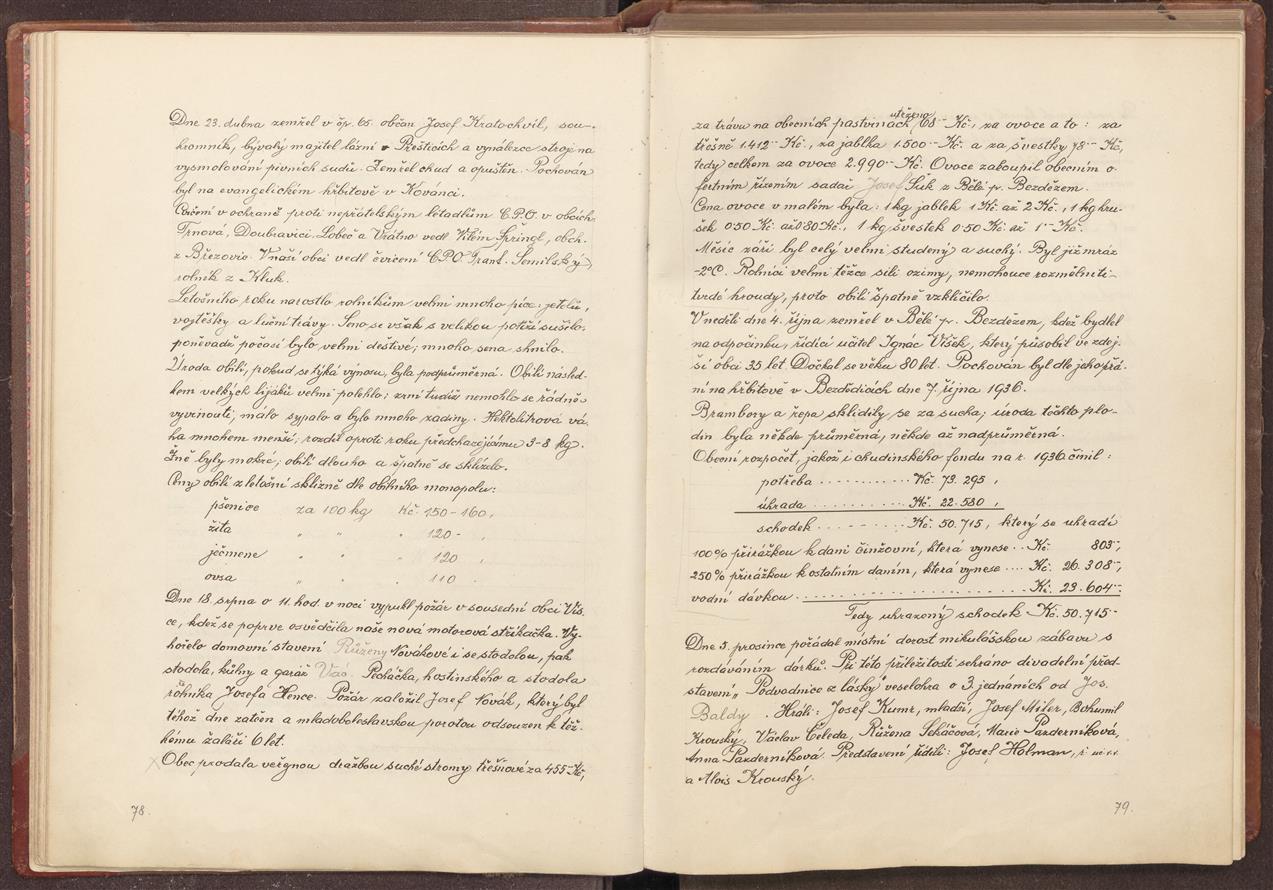 Dne 23. dubna zemřel v čp. 65. občan Josef Kratochvil, sou-
kromník, bývalý majitel lázní v Přešticích a vynálezce stroje na
vysmolování pivních sudů. Zemřel chud a opuštěn. Pochován
byl na evangelickém hřbitově v Kovánci.
Cvičení v ochraně proti nepřátelským letadlům C.P.O. v obcích
Trnová, Doubravici, Lobeč a Vrátno vedl Vilém Špringl, obch.
z Březovic. V naší obci vedl cvicení C.P.O. Frant. Semilský,
rolník z Kluk.
Letošního roku narostlo rolníkům velmi mnoho píce: jetelů,
vojtěšky a luční trávy. Seno se však s velikou potíží sušilo,
poněvadž počasí bylo velmi deštivé; mnoho sena shnilo.
Úroda obilí, pokud se týká výnosu, byla podprůměrná. Obilí násled-
kem velkých lijáků velmi polehlo; zrní tudíž nemohlo se řádně
vyvinouti, málo sypalo a bylo mnoho zadiny. Hektolitrová vá-
ha mnohem menší, rozdíl oproti roku předcházejícímu 3-8 kg.
Žně byly mokré; obilí dlouho a špatně se sklízelo.
Ceny obilí z letošní sklizně dle obilního monopolu:
pšenice za 100 kg Kč 150 - 160,
žita " " " 120 - ,
ječmene " " " 120 ,
ovsa " " " 110 .
Dne 18. srpna o 11. hod. v noci vypukl požár v sousední obci Vis-
ce, kdež se poprve osvědčila naše nová motorová stříkačka. Vy-
hořelo domovní stavení Růženy Novákové i se stodolou, pak
stodola, kůlny a garáž Vác. Pecháčka, hostinského a stodola
rolníka Josefa Hence. Požár založil Josef Novák, který byl
téhož dne zatčen a mladoboleslavskou porotou odsouzen k těž-
kému žaláři 6 let.
Obec prodala veřejnou dražbou suché stromy třešňové za 455 Kč,
78.
za trávu na obecních pastvinách utrženo 68 - Kč, za ovoce a to: za
třešně 1.412 - Kč, za jablka 1.500 - Kč a za švestky 78 - Kč,
tedy celkem za ovoce 2.990 - Kč. Ovoce zakoupil obecním o-
fertním řízením sadař Josef Šuk z Bělé p. Bezdězem.
Cena ovoce v malém byla: 1 kg jablek 1 Kč až 2 Kč, 1 kg hru-
šek 0.50 Kč až 0.80 Kč, 1 kg švestek 0.50 Kč až 1 - Kč.
Měsíc září byl celý velmi studený a suchý. Byl již mráz
-2°C. Rolníci velmi těžce sili ozimy, nemohouce rozmělniti
tvrdé hroudy, proto obilí špatně vzklíčilo.
V neděli dne 4. října zemřel v Bělé p. Bezdězem, kdež bydlel
na odpočinku, řídící učitel Ignác Víšek, který působil ve zdej-
ší obci 35 let. Dočkal se věku 80 let. Pochován byl dle jeho přá-
ní na hřbitově v Bezdědicích dne 7. října 1936.
Brambory a řepa sklidily se za sucha; úroda těchto plo-
din byla někde průměrná, někde až nadprůměrná.
Obecní rozpočet, jakož i chudinského fondu na r. 1936 činil:
potřeba ............ Kč. 73.295 ,
úhrada ............ Kč. 22.580 ,
schodek ........... Kč. 50.715, který se uhradí
100% přirážkou k dani činžovní, která vynese .. Kč. 803 -,
250% přirážkou k ostatním daním, která vynese .... Kč. 26.308 -,
vodní dávkou ........................ Kč. 23.604 -
Tedy uhrazený schodek Kč. 50.715 -
Dne 5. prosince pořádal místní dorost mikulášskou zábavu s
rozdáváním dárků. Při této příležitosti sehráno divadelní před-
stavení „Podvodnice z lásky" veselohra o 3. jednáních od Jos.
Baldy. Hráli: Josef Kumr, mladší, Josef Miler, Bohumil
Krouský, Václav Čeleda, Růžena Sekáčová, Marie Pazderníková,
Anna Pazderníková. Představení řídili: Josef Holman,
a Alois Krouský.
79.